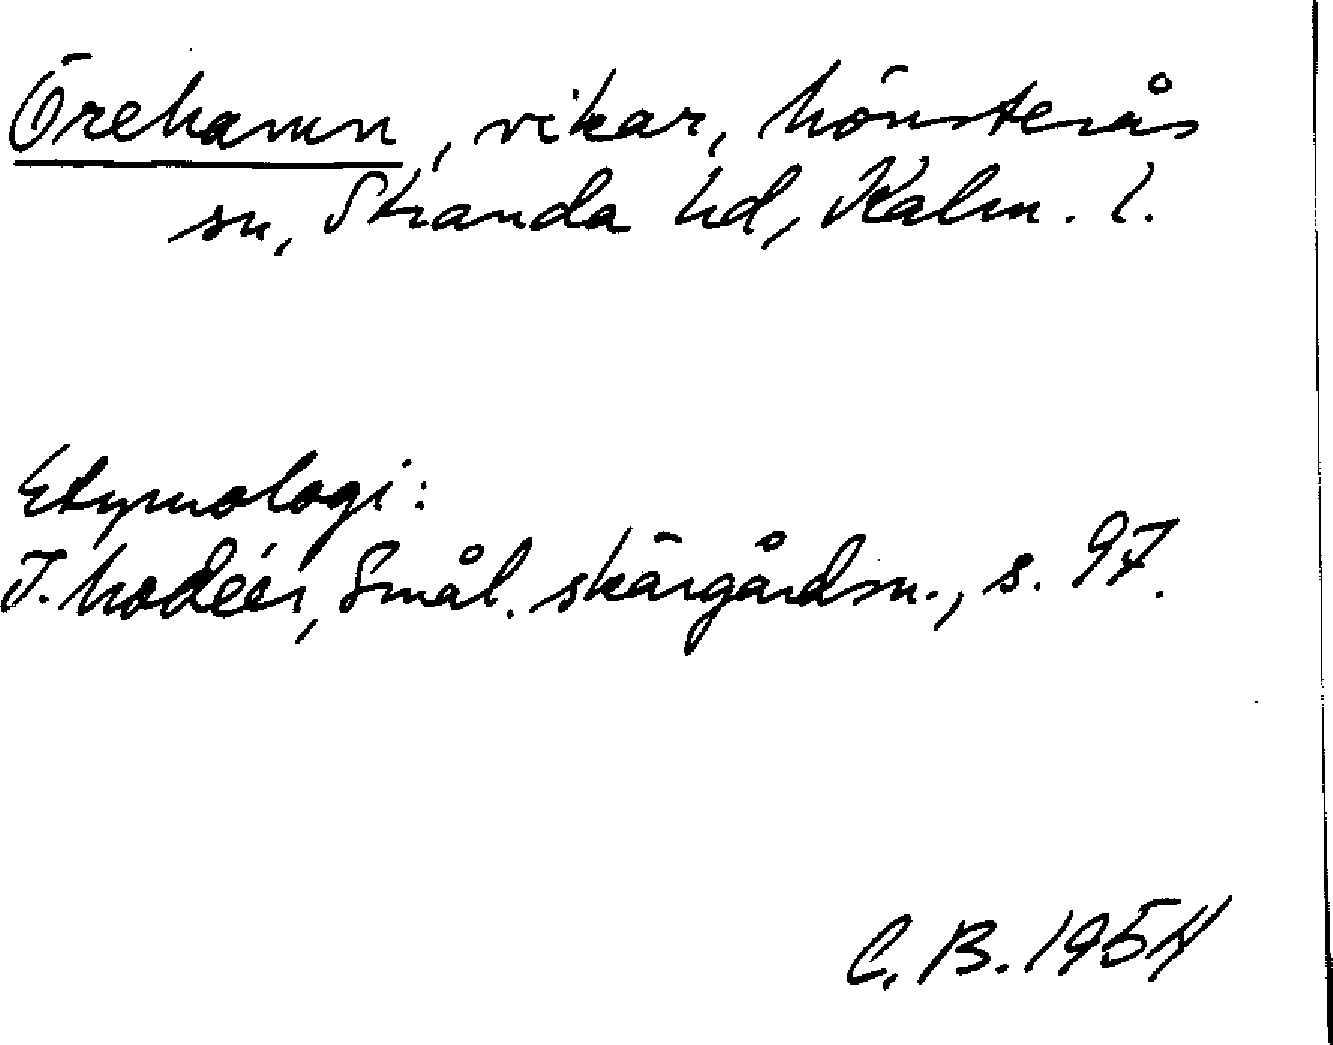 Örehamn, vikar, Mönsterås
sn, Stranda hd, Kalm. l.
Etymologi:
I. Modéer, Smål. skärgårdsn., s. 97.
C. B. 1954